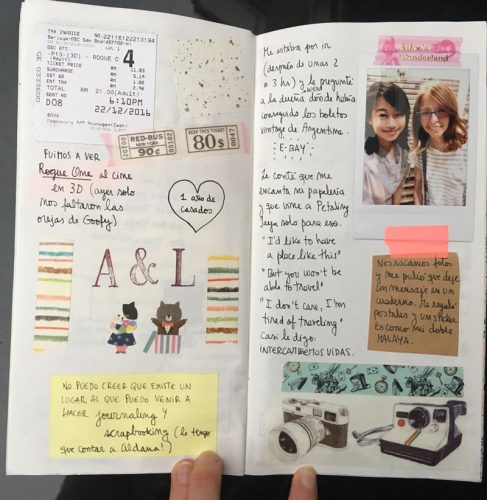 TAX INVOICE NO.22116122213194
GSC BTS LVL 1
P13-(3D) - ROGUE O 4
(Adult)
TICKET PRICE RM
SURCHARGE RM
GST 6% RM
NET RM
TOTAL RM 21.00(Adult)
SEAT NO
D08 6:10PM
22/12/2016
RED-BUS
NEW YORK
90¢
KEEP THIS TICKET
80$
00147
FUIMOS A VER
Rogue One al cine
en 3D (ayer solo
nos faltaron las
orejas de Goofy)
1 año de
casados
A & L
NO PUEDO CREER QUE EXISTE UN
LUGAR AL QUE PUEDO VENIR A
HACER journaling Y
scrapbooking (le tengo
que contar a Aldana!)
Me estaba por ir
(después de unas 2
o 3 hs) y le pregunté
a la dueña dónde había
conseguido los boletos
vintage de Argentina.
E-BAY
Le conté que me
encanta su papelería
y que vine a Petaling
Jaya solo para eso.
"I'd like to have
a place like this!"
"But you won't be
able to travel"
"I don't care, I'm
tired of traveling"
Casi le digo:
INTERCAMBIEMOS VIDAS.
Wonderland
Nos sacamos fotos
y me pidió que deje
un mensaje en un
cuaderno. Me regaló
postales y un sticker.
Es como mi doble
MALAYA.